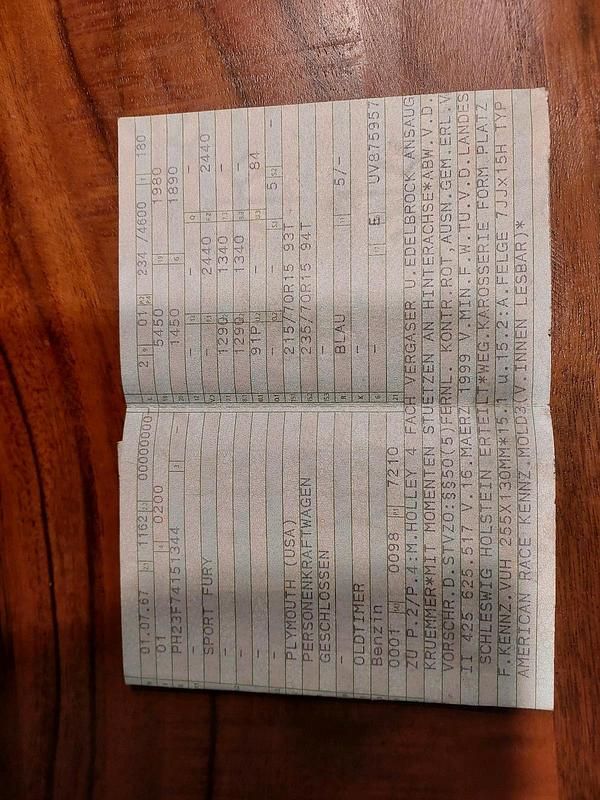 01.07.67 1162 00000000-
01 0200
PH23F74151344 -
-
SPORT FURY
-
-
-
-
PLYMOUTH (USA)
PERSONENKRAFTWAGEN
GESCHLOSSEN
-
OLDTIMER
Benzin
0001 0098 7210
2 01 234 /4600 180
5450 1980
1450 1890
- - -
2440 2440 2440
1290 1340 -
1290 1340 -
91P - 84
- - 5 -
215/70R15 93T
235/70R15 94T
-
BLAU 5/-
-
- E UV875957
ZU P.2/P.4:M.HOLLEY 4 FACH VERGASER U.EDELBROCK ANSAUG
KRUEMMER*MIT MOMENTEN STUETZEN AN HINTERACHSE*ABW.V.D.
VORSCHR.D.STVZO:§§50(5)FERNL. KONTR.ROT,AUSN.GEM.ERL.V
II 425 625.517 V.16.MAERZ 1999 V.MIN.F.W.TU.V.D.LANDES
SCHLESWIG HOLSTEIN ERTEILT*WEG.KAROSSERIE FORM PLATZ
F.KENNZ.VUH 255X130MM*15.1 u.15.2:A.FELGE 7JJx15H TYP
AMERICAN RACE KENNZ.MOLD3(V.INNEN LESBAR)*